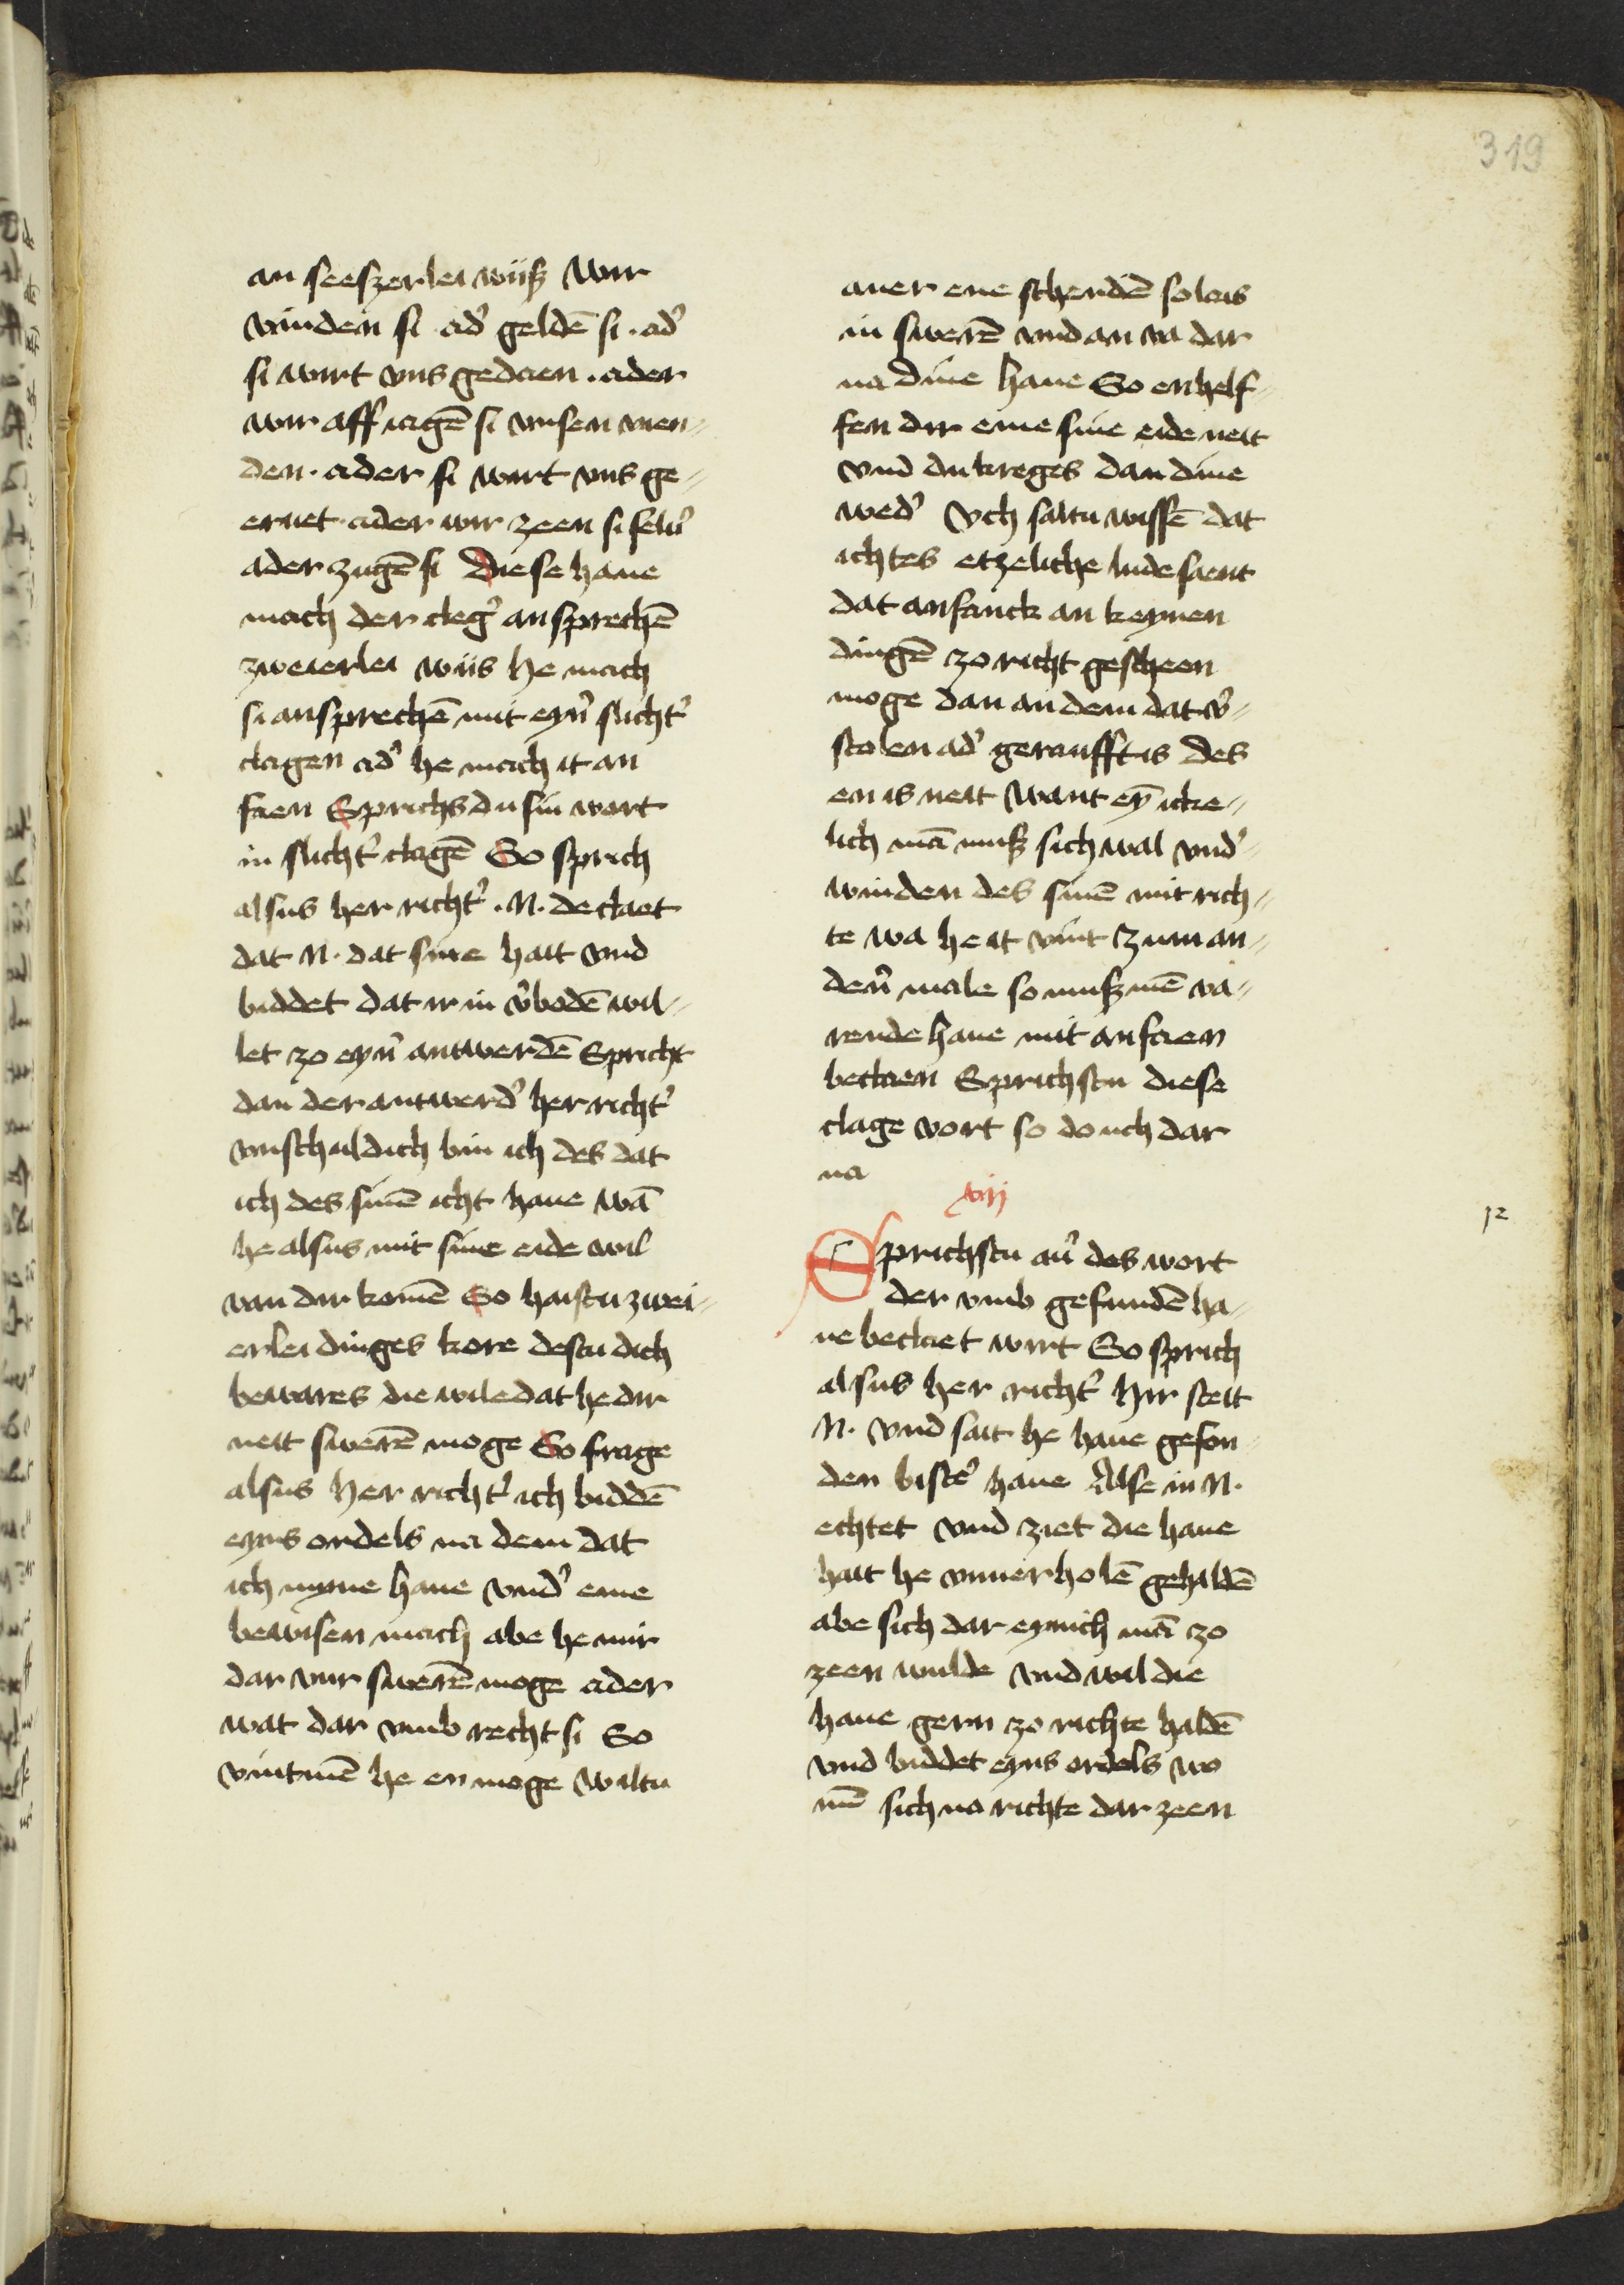 319
an seeszerlei wiis wir
vinden si ad' geldē si. ad'
si wirt vns gedaen. ader
wir aff iagē si vnsen vien-
den. ader si wirt vns ge-
eruet. ader wir zeen si selu'
ader zugē si Diese haue
mach der cleg' an sprechē
zweierlei wiis he mach
si ansprechē mit eyn' slicht'
clagen ad' he mach it an
faen Sprichs du sin wort
in slicht' clagē So sprich
alsus her richt'. N. de claet
dat N. dat sine hait vnd
biddet dat ir in v'bodē wil-
let zo eyn' antwerdē Spricht
dan der antwerd' her richt'
vnschuldich bin ich des dat
ich des sinē icht haue wā
he alsus mit sine eide wil
van dir komē So haistu zwei-
erlei dinges kore destu dich
bewares die wile dat he dir
neit swerē moge So frage
alsus Her richt' ich biddē
eyns ordels na dem dat
ich myne haue vnd' eme
bewisen mach abe he mir
dar vur swerē moge ader
wat dar vmb recht si So
vint mē he en moge wiltu
auer ene schendē so lais
in swerē vnd an va dar
na dine haue So enhelf-
fen dir eme sine eide neit
vnd du kreges dan dine
wed' Vch saltu wissē dat
ichtes etzeliche lude saent
dat anfanck an keynen
dingē zo richt gescheen
moge dan an dem dat v'-
stolen ad' geraufft is des
en is neit want ey̅ icke-
lich mā mus sich wal vnd'-
winden des sinē mit rich-
te wa he it vint zum an-
der' male so mus mē va-
rende haue mit anfaen
beclaen Sprichstu diese
clage vort so do uch dar
na
viij
Sprichstu au' des wort
der vmb gefundē ha-
ue beclaet wirt So sprich
alsus her richt' Hir steit
N. vnd sait he haue gefon-
den bist' haue Alse in N.
echtet vnd ziet die haue
hait he vnuerholē gehaldē
abe sich dar eynich mā zo
zeen wulde vnd wil die
haue gern zo richte haldē
vnd biddet eyns ordels wo
mē sich na richte dar zeen
12